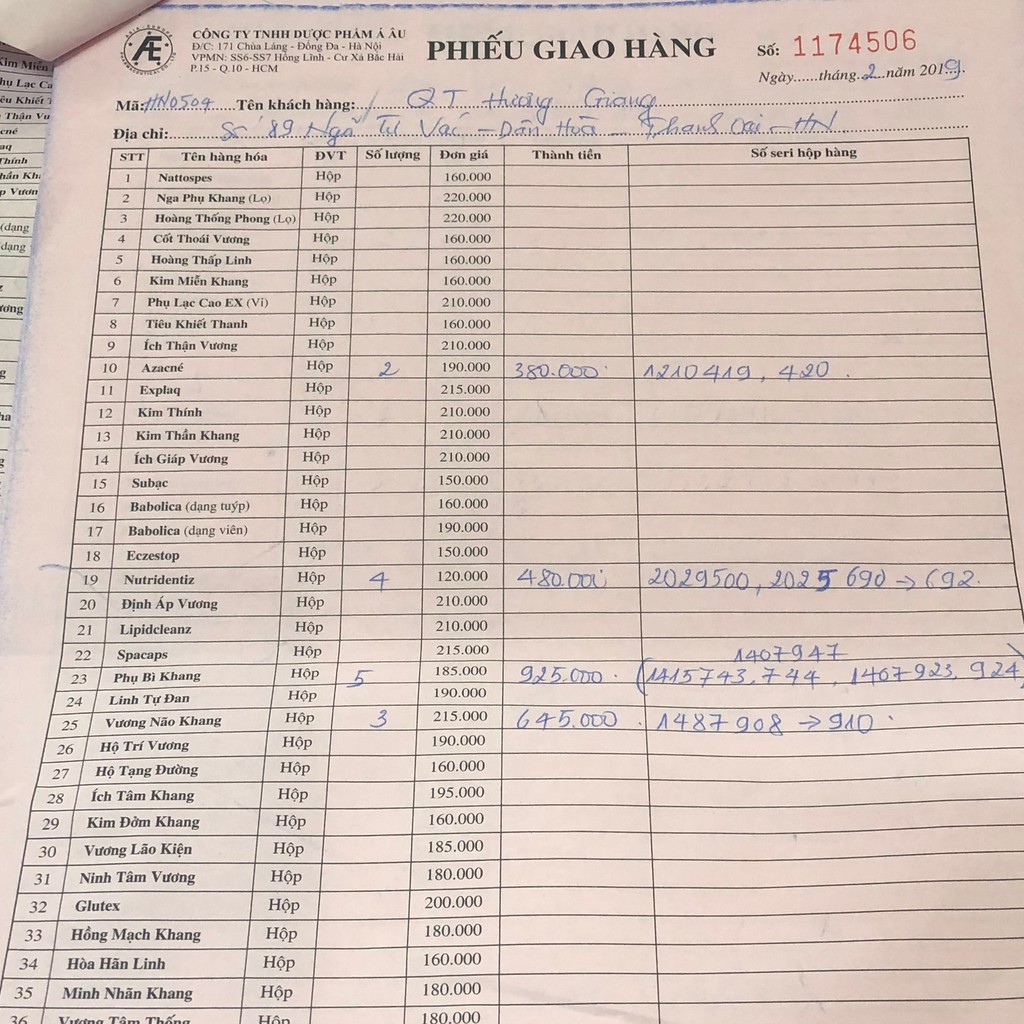 CÔNG TY TNHH DƯỢC PHẨM Á ÂU
Đ/C: 171 Chùa Láng - Đống Đa - Hà Nội
VPMN: SS6-SS7 Hồng Lĩnh - Cư Xá Bắc Hải
P.15 - Q.10 - HCM
PHIẾU GIAO HÀNG
Số: 1174506
Ngày......tháng.2..năm 2019.
Mã: HN0504 Tên khách hàng: QT Hương Giang
Địa chỉ: Số 89 Ngã Tư Vác - Dân Hoà - Thanh Oai - HN
STT Tên hàng hóa ĐVT Số lượng Đơn giá Thành tiền Số seri hộp hàng
1 Nattospes Hộp 160.000
2 Nga Phụ Khang (Lọ) Hộp 220.000
3 Hoàng Thống Phong (Lọ) Hộp 220.000
4 Cốt Thoái Vương Hộp 160.000
5 Hoàng Thấp Linh Hộp 160.000
6 Kim Miễn Khang Hộp 160.000
7 Phụ Lạc Cao EX (Vỉ) Hộp 210.000
8 Tiêu Khiết Thanh Hộp 160.000
9 Ích Thận Vương Hộp 210.000
10 Azacné Hộp 2 190.000 380.000 1210419, 420
11 Explaq Hộp 215.000
12 Kim Thính Hộp 210.000
13 Kim Thần Khang Hộp 210.000
14 Ích Giáp Vương Hộp 210.000
15 Subạc Hộp 150.000
16 Babolica (dạng tuýp) Hộp 160.000
17 Babolica (dạng viên) Hộp 190.000
18 Eczestop Hộp 150.000
19 Nutridentiz Hộp 4 120.000 480.000 2029500, 2025690 → 692.
20 Định Áp Vương Hộp 210.000
21 Lipidcleanz Hộp 210.000
22 Spacaps Hộp 215.000
1407947
23 Phụ Bì Khang Hộp 5 185.000 925.000 (1415743, 744, 1407923, 924)
24 Linh Tự Đan Hộp 190.000
25 Vương Não Khang Hộp 3 215.000 645.000 1487908 → 910
26 Hộ Trí Vương Hộp 190.000
27 Hộ Tạng Đường Hộp 160.000
28 Ích Tâm Khang Hộp 195.000
29 Kim Đởm Khang Hộp 160.000
30 Vương Lão Kiện Hộp 185.000
31 Ninh Tâm Vương Hộp 180.000
32 Glutex Hộp 200.000
33 Hồng Mạch Khang Hộp 180.000
34 Hòa Hãn Linh Hộp 160.000
35 Minh Nhãn Khang Hộp 180.000
36 Vương Tâm Thống Hộp 180.000